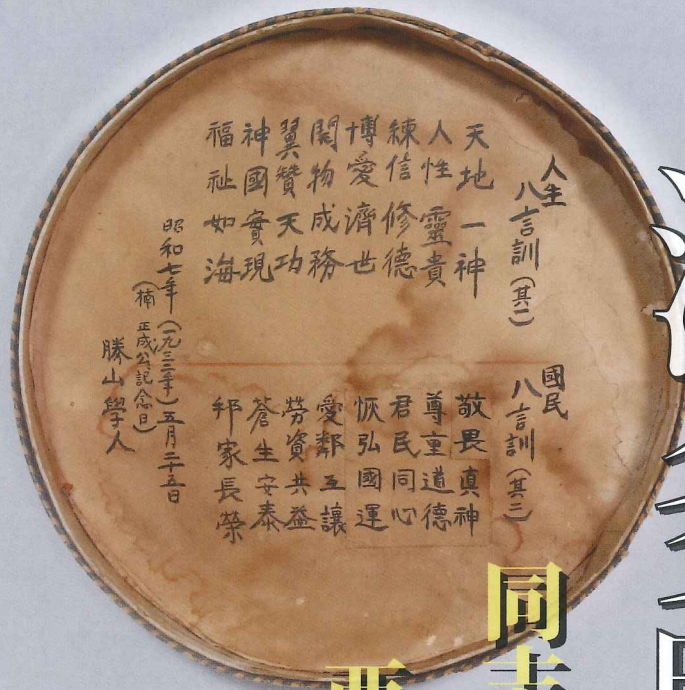 人生
八言訓（其二）
天地一神
人性靈貴
練信修德
博愛濟世
開物成務
翼贊天功
神國實現
福祉如海
國民
八言訓（其三）
敬畏真神
尊重道德
君民同心
恢弘國運
愛鄰互讓
勞資共益
蒼生安泰
邦家長榮
昭和七年（一九三二年）五月二十五日
（楠正成公記念日）
勝山學人
同